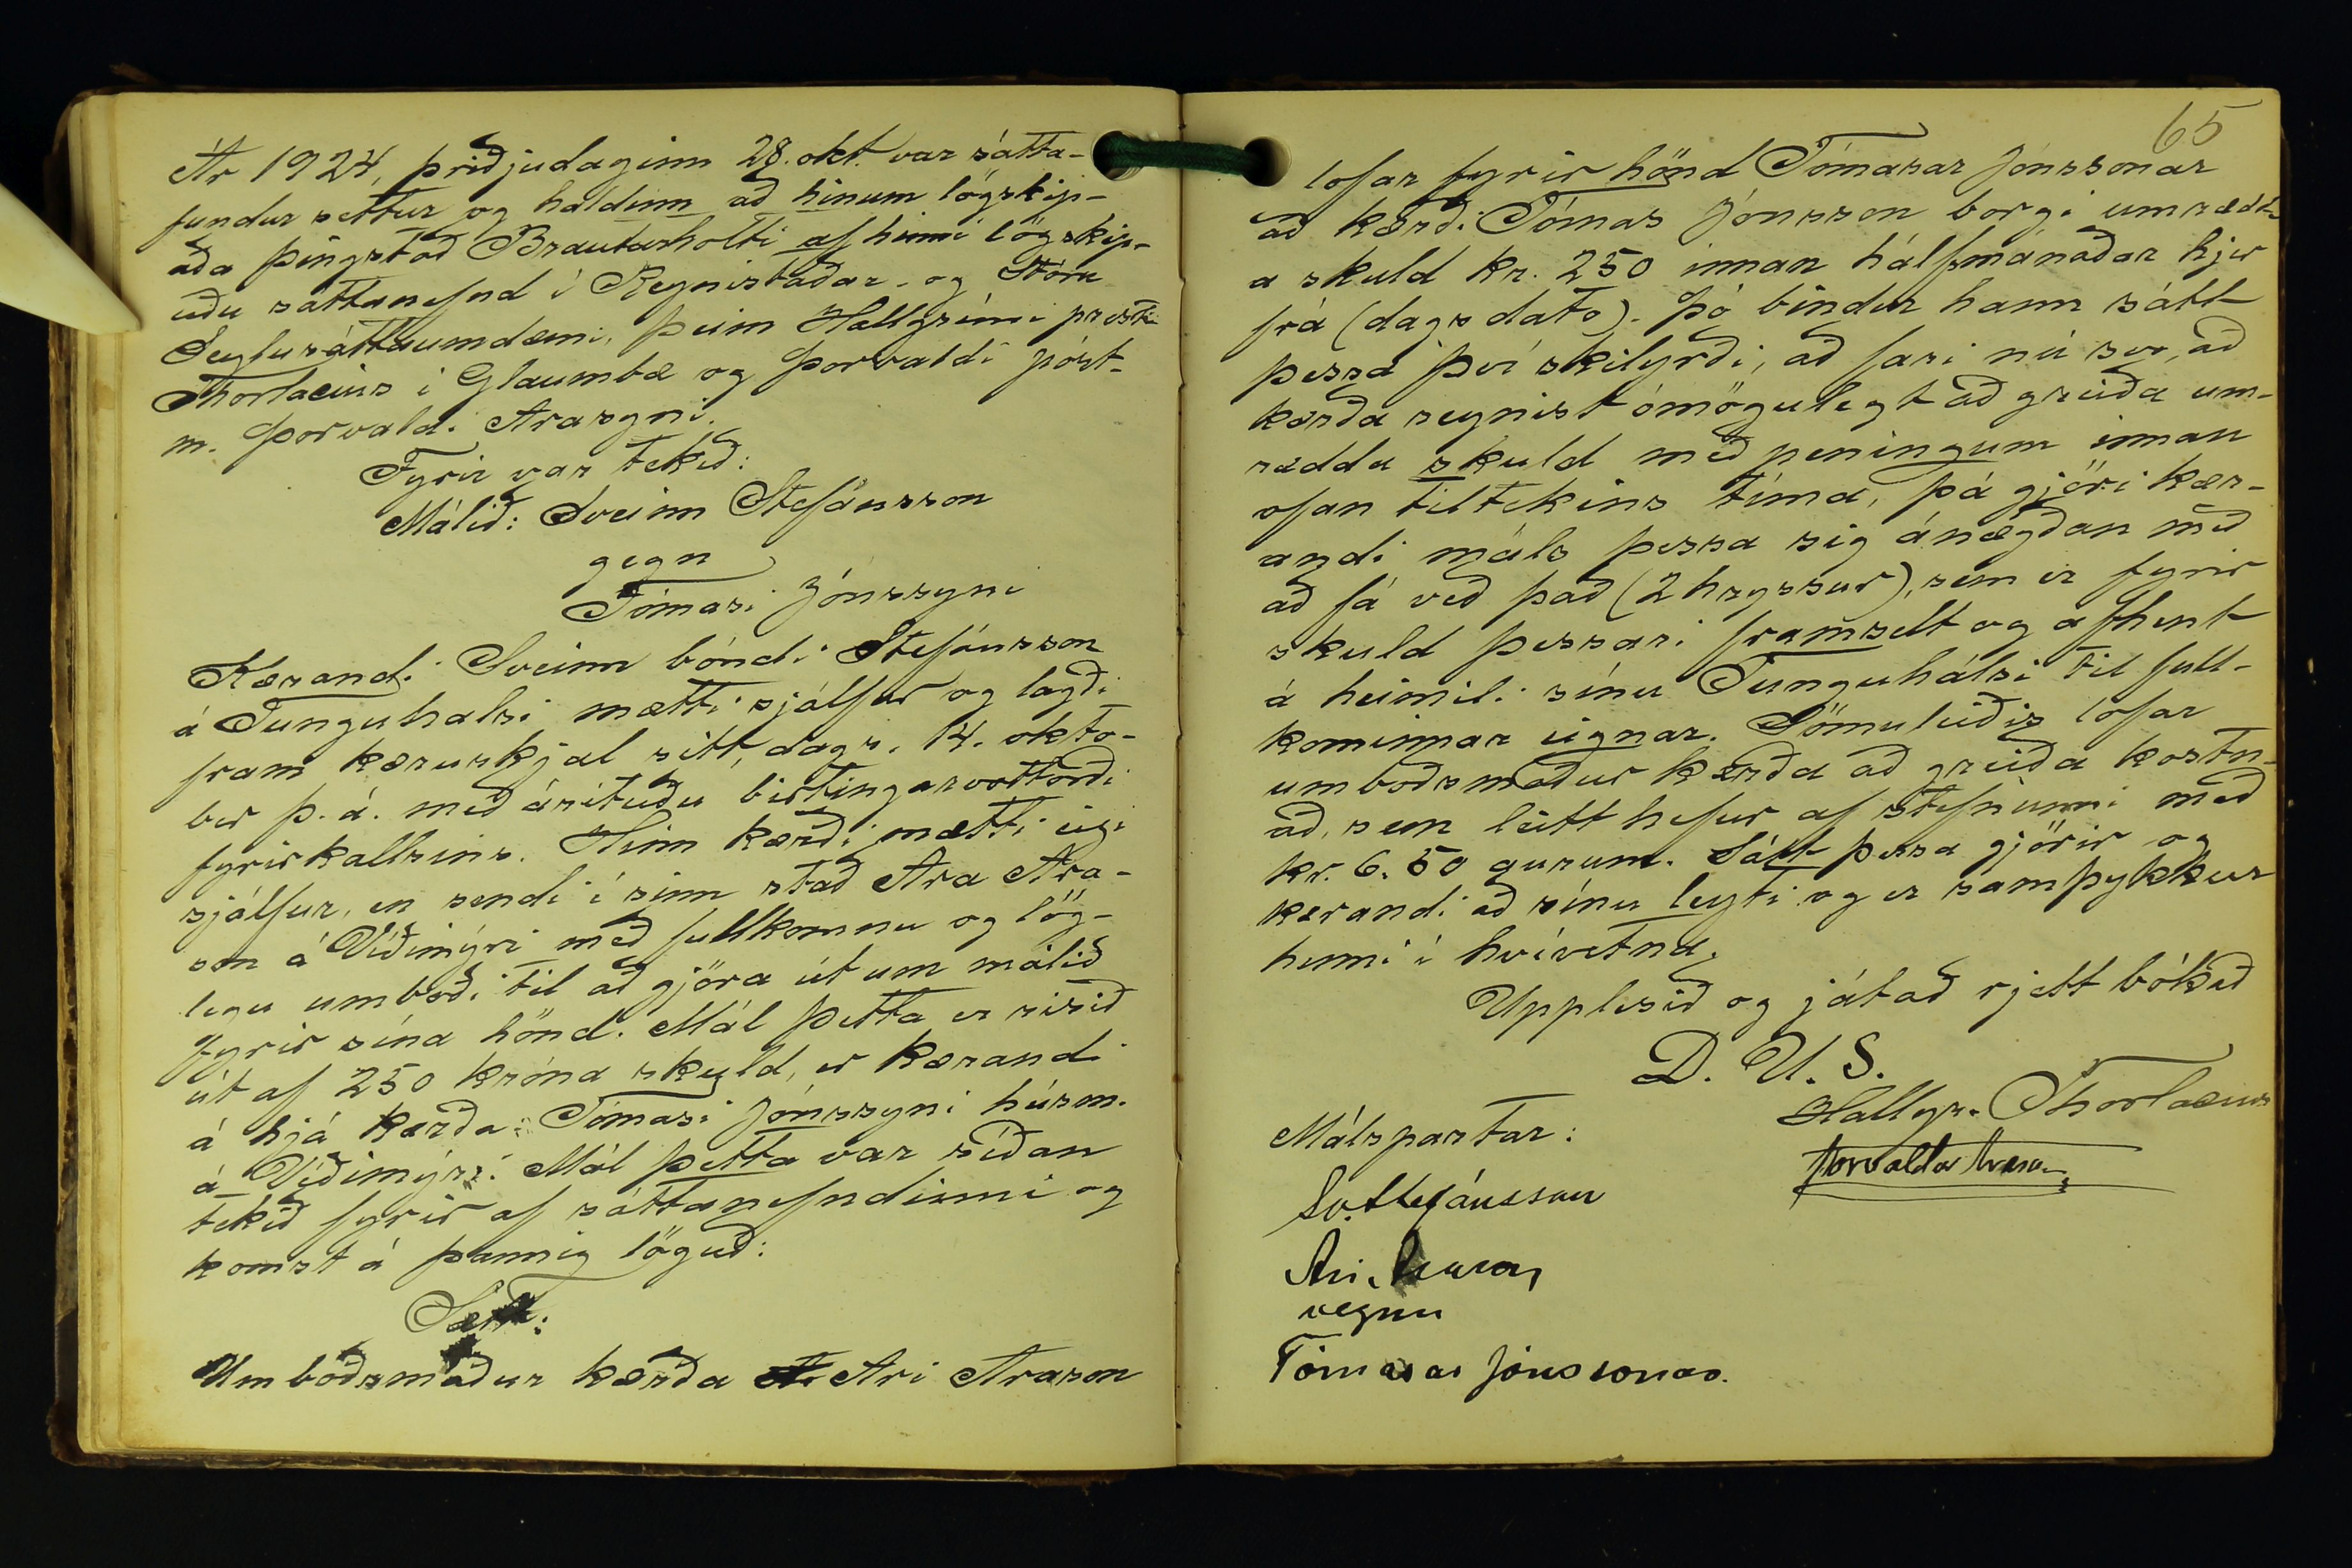 Ár 1924, þriðjudaginn 28. okt. var sátta-
fundur settur og haldinn að hinum lögskip-
aða þingstað Brautarholti af hinni lögskip-
uðu sáttanefnd í Reynistaðar- og Stóru
Seylusáttaumdæmi, þeim Hallgrími presti
Thorlacius í Glaumbæ og Þorvaldi póst-
m. Þorvaldi Arasyni.
Fyrir var tekið:
Málið: Sveinn Stefánsson
gegn
Tómasi Jónssyni
Kærandi Sveinn bóndi Stefánsson
á Tunguhalsi mætti sjálfur og lagði
fram kæruskjal sitt, dags. 14. októ-
ber þ. á. með árituðu birtingarvottorði
fyrirkallsins. Hinn kærði mætti eigi
sjálfur, en sendi í sinn stað Ara Ara-
son á Víðimýri með fullkomnu og lög-
legu umboði til að gjöra út um málið
fyrir sína hönd. Mál þetta er risið
út af 250 króna skuld, er kærandi
á hjá kærða: Tómasi Jónssyni húsm.
á Víðimýri. Mál þetta var síðan
tekið fyrir af sáttanefndinni og
komst á þannig löguð:
Sætt:
Umboðsmaður kærða Ari Arason
65
lofar fyrir hönd Tómasar Jónssonar
að kærði Tómas Jónsson borgi umrædt-
a skuld kr. 250 innan hálfmánaðar hjer
frá (dags dato). Þó bindur hann sátt
þessa því skilyrði, að fari nú svo, að
kærða reynist ómögulegt að greiða um-
rædda skuld með peningum innan
ofan tiltekins tíma, þá gjöri kær-
andi máls þessa sig ánægðan með
að fá veð það (2 hryssur), sem er fyrir
skuld þessari framselt og afhent
á heimili sínu Tunguhálsi til full-
kominnar eignar. Sömuleiðis lofar
umboðsmaður kærða að greiða kostn-
að, sem leitt hefur af stefnunni með
kr. 6.50 aurum. Sátt þessa gjörir og
kærandi að sínu leyti og er samþykkur
henni í hvívetna.
Upplesið og játað rjett bókað
D. U. S.
Hallgr. Thorlacius
Þorvaldur Arason
Málspartar:
Sv. Stefánsson
Ari Arason
vegna
Tómasar Jónssonar.